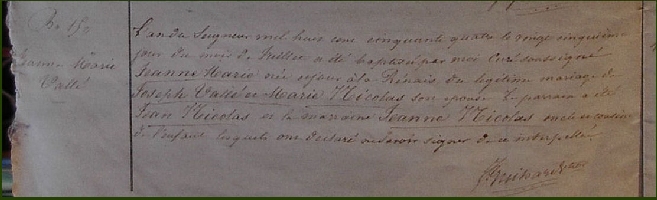 Bn 15
Jeanne Marie
Vallé
L'an du Seigneur mil huit cent cinquante quatre le vingt cinquième
jour du mois de Juillet a été baptisée par moi Curé soussigné
Jeanne Marie née ce jour à la Rinais du légitime mariage de
Joseph Vallé et Marie Nicolas son épouse Le parrain a été
Jean Nicolas et la marraine Jeanne Nicolas oncle et cousine
de l'enfant lesquels ont déclaré ne savoir signer de ce interpellés